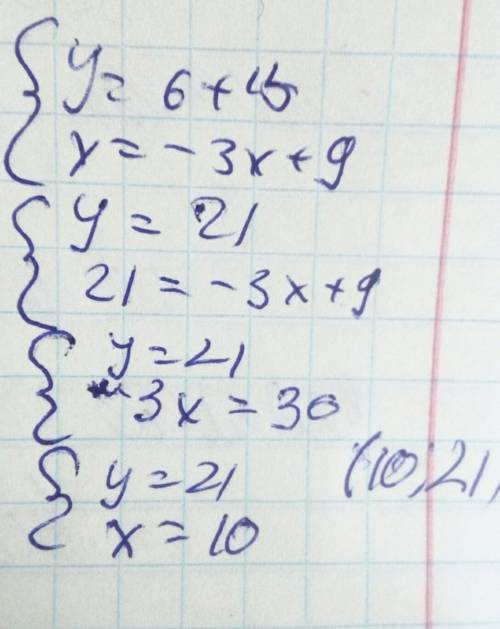 y = 6 + 15
x = -3x + 9
y = 21
21 = -3x + 9
y = 21
-3x = 30
y = 21
x = 10
(10, 21)